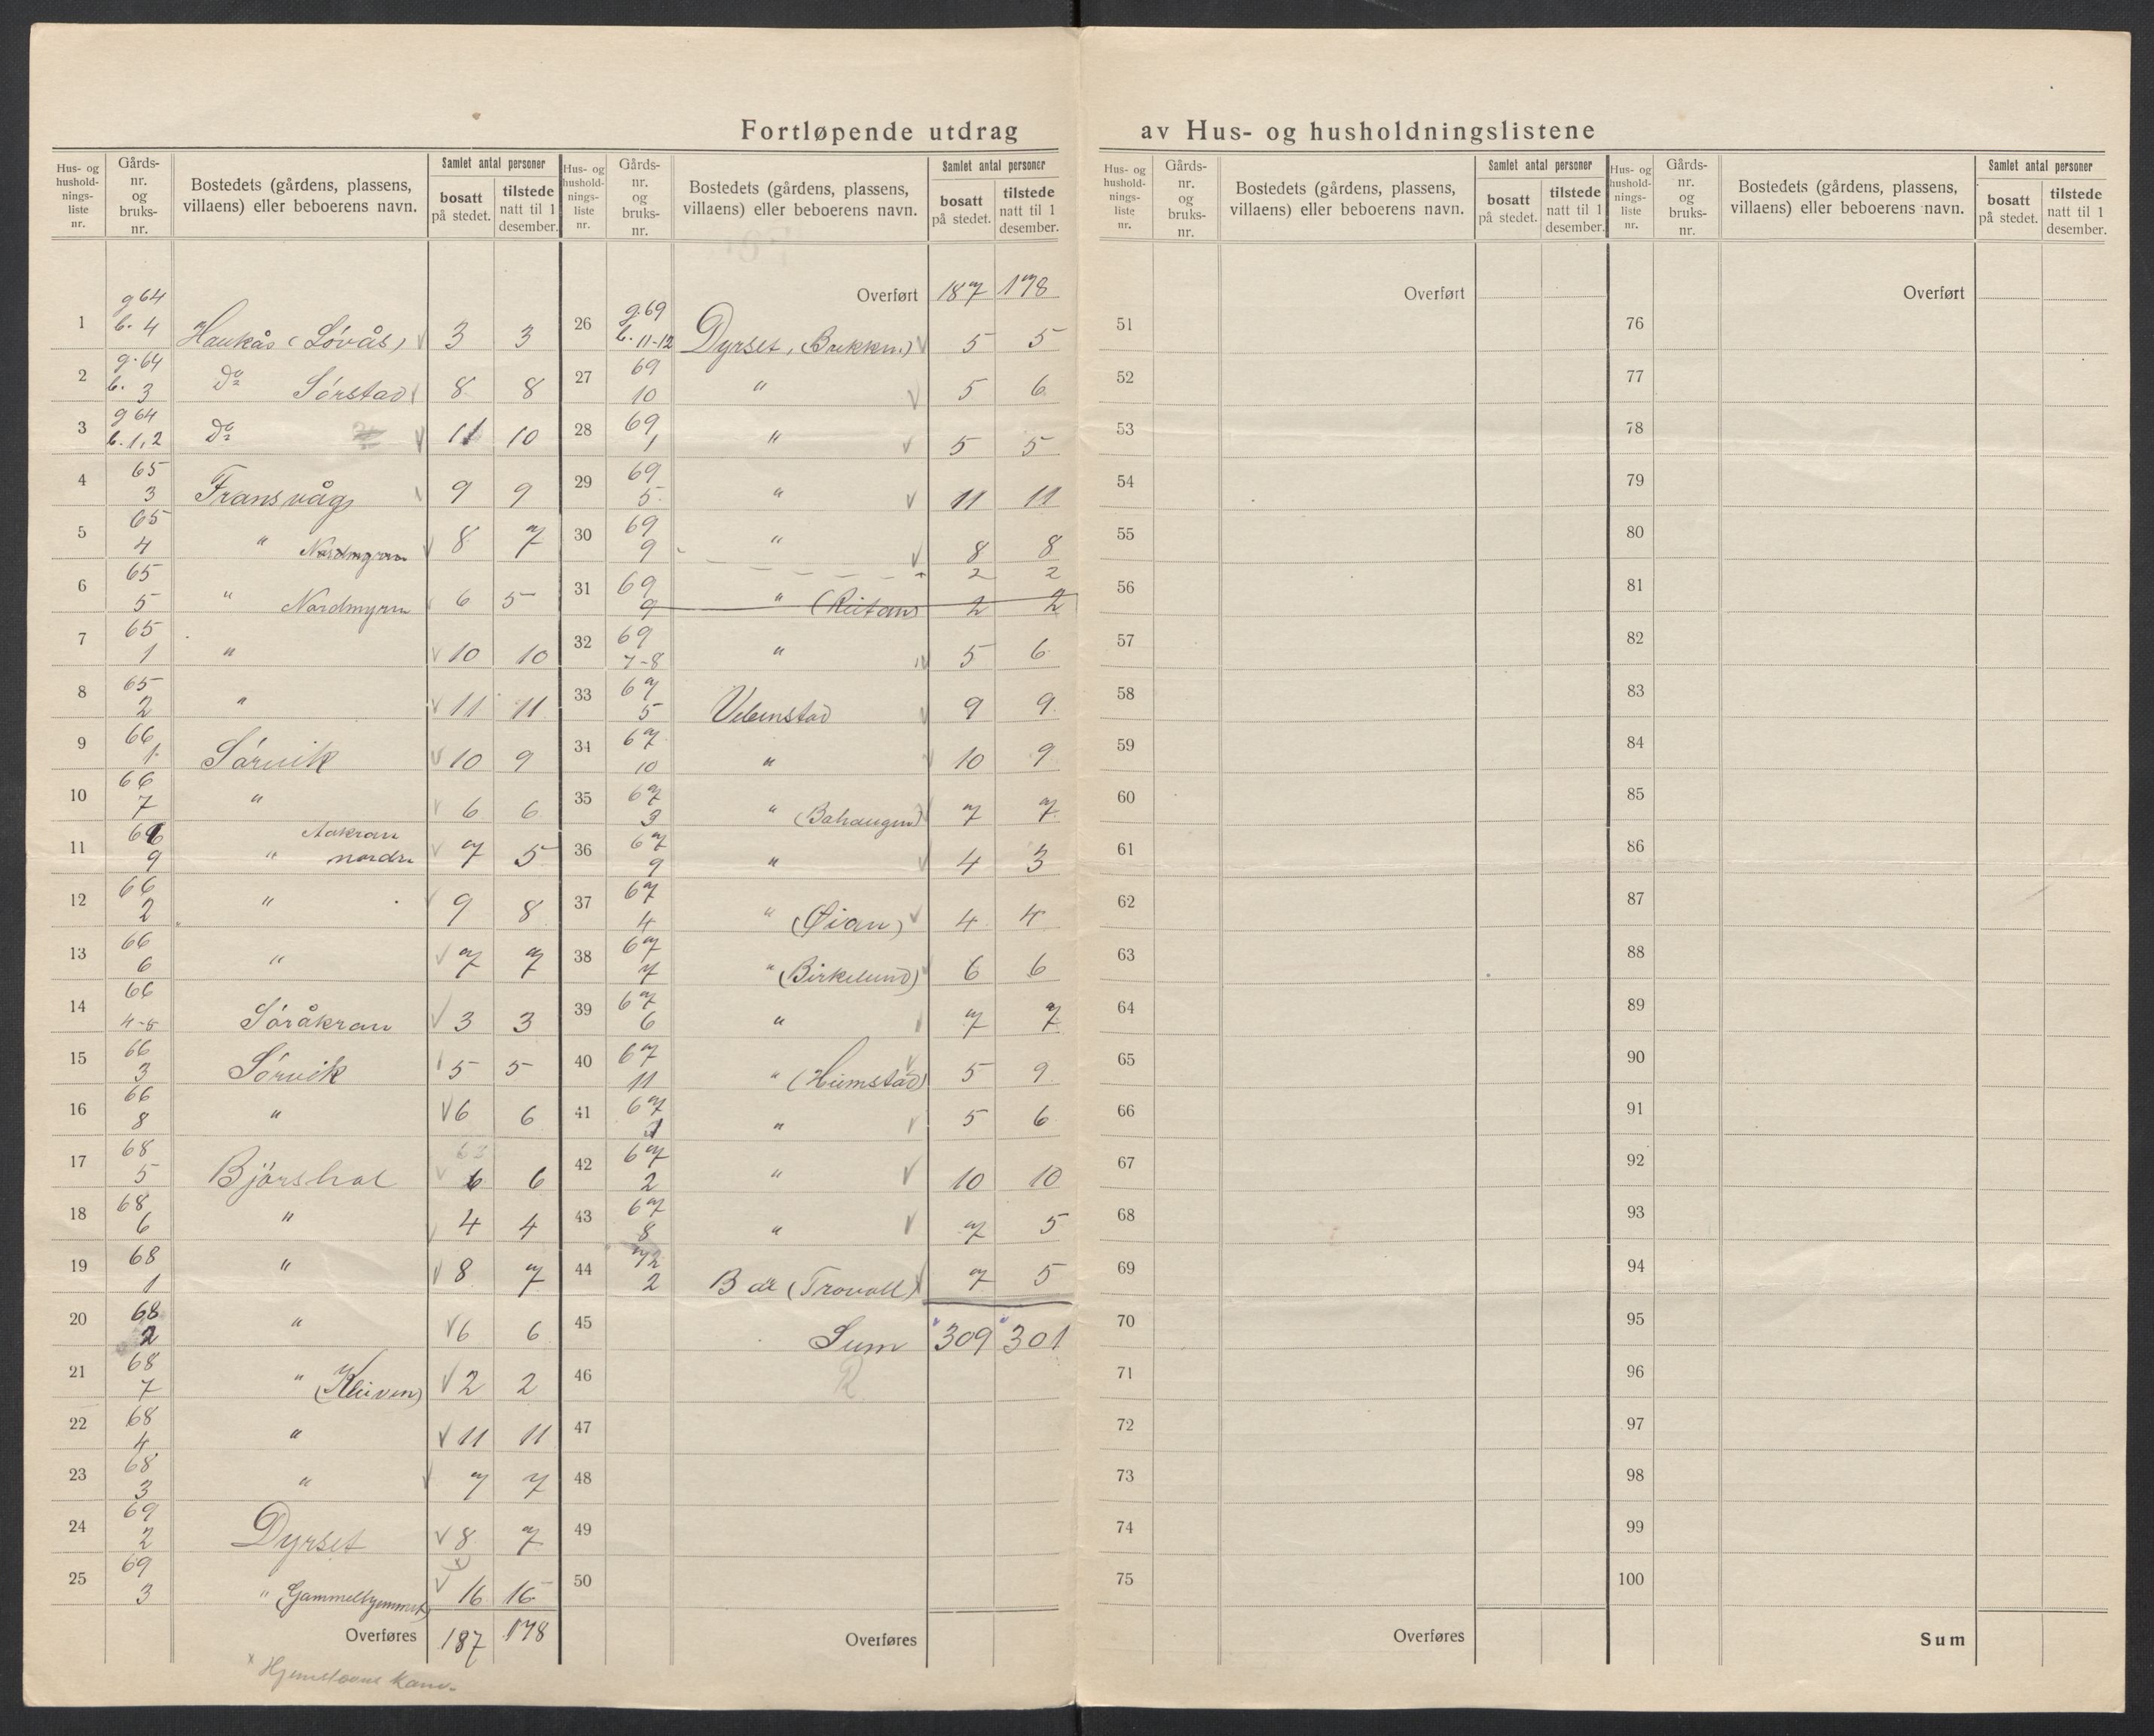 Fortløpende utdrag av Hus- og husholdningslistene
Hus- og hushold-nings-liste nr. Gårds-nr. og bruks-nr. Bostedets (gårdens, plassens, villaens) eller beboerens navn. Samlet antal personer bosatt på stedet. tilstede natt til 1 desember.
Hus- og hushold-nings-liste nr. Gårds-nr. og bruks-nr. Bostedets (gårdens, plassens, villaens) eller beboerens navn. Samlet antal personer bosatt på stedet. tilstede natt til 1 desember.
Hus- og hushold-nings-liste nr. Gårds-nr. og bruks-nr. Bostedets (gårdens, plassens, villaens) eller beboerens navn. Samlet antal personer bosatt på stedet. tilstede natt til 1 desember.
Hus- og hushold-nings-liste nr. Gårds-nr. og bruks-nr. Bostedets (gårdens, plassens, villaens) eller beboerens navn. Samlet antal personer bosatt på stedet. tilstede natt til 1 desember.
1 g 64 b. 4 Haukås (Lövås) 3 3
2 g. 64 b. 3 Do Sörstad 8 8
3 g 64 b. 1, 2 Do 11 10
4 65 3 Fransvåg 9 9
5 65 4 " Nordmyren 8 7
6 65 5 " Nordmyrn 6 5
7 65 1 " 10 10
8 65 2 " 11 11
9 66 1 Sörvik 10 9
10 66 7 " 6 6
11 66 9 " Aakran nordre 7 5
12 66 2 " 9 8
13 66 6 " 7 7
14 66 4-5 Söråkran 3 3
15 66 3 Sörvik 5 5
16 66 8 " 6 6
17 68 5 Björshol 6 6
18 68 6 " 4 4
19 68 1 " 8 7
20 68 2 " 6 6
21 68 7 " (Kleiven) 2 2
22 68 4 " 11 11
23 68 3 " 7 7
24 69 2 Dyrset 8 7
25 69 3 " (Gammelhjemmet) 16 16
Overføres 187 178
x Hjemstavns
Overført 187 178
26 g. 69 b. 11-12 Dyrset, (Bakken) 5 5
27 69 10 " 5 6
28 69 1 " 5 5
29 69 5 " 11 11
30 69 9 " 8 8
2 2
31 69 9 " (Reitan) 2 2
32 69 7-8 " 5 6
33 67 5 Velenstad 9 9
34 67 10 " 10 9
35 67 3 " (Bahaugen) 7 7
36 67 9 " 4 3
37 67 4 " (Øian) 4 4
38 67 7 " (Birkelund) 6 6
39 67 6 " 7 7
40 67 11 " (Heimstad) 5 9
41 67 1 " 5 6
42 67 2 " 10 10
43 67 8 " 7 5
44 72 2 (Trovoll) 7 5
45 Sum 309 301
46
47
48
49
50
Overføres
Overført
51
52
53
54
55
56
57
58
59
60
61
62
63
64
65
66
67
68
69
70
71
72
73
74
75
Overføres
Overført
76
77
78
79
80
81
82
83
84
85
86
87
88
89
90
91
92
93
94
95
96
97
98
99
100
Sum